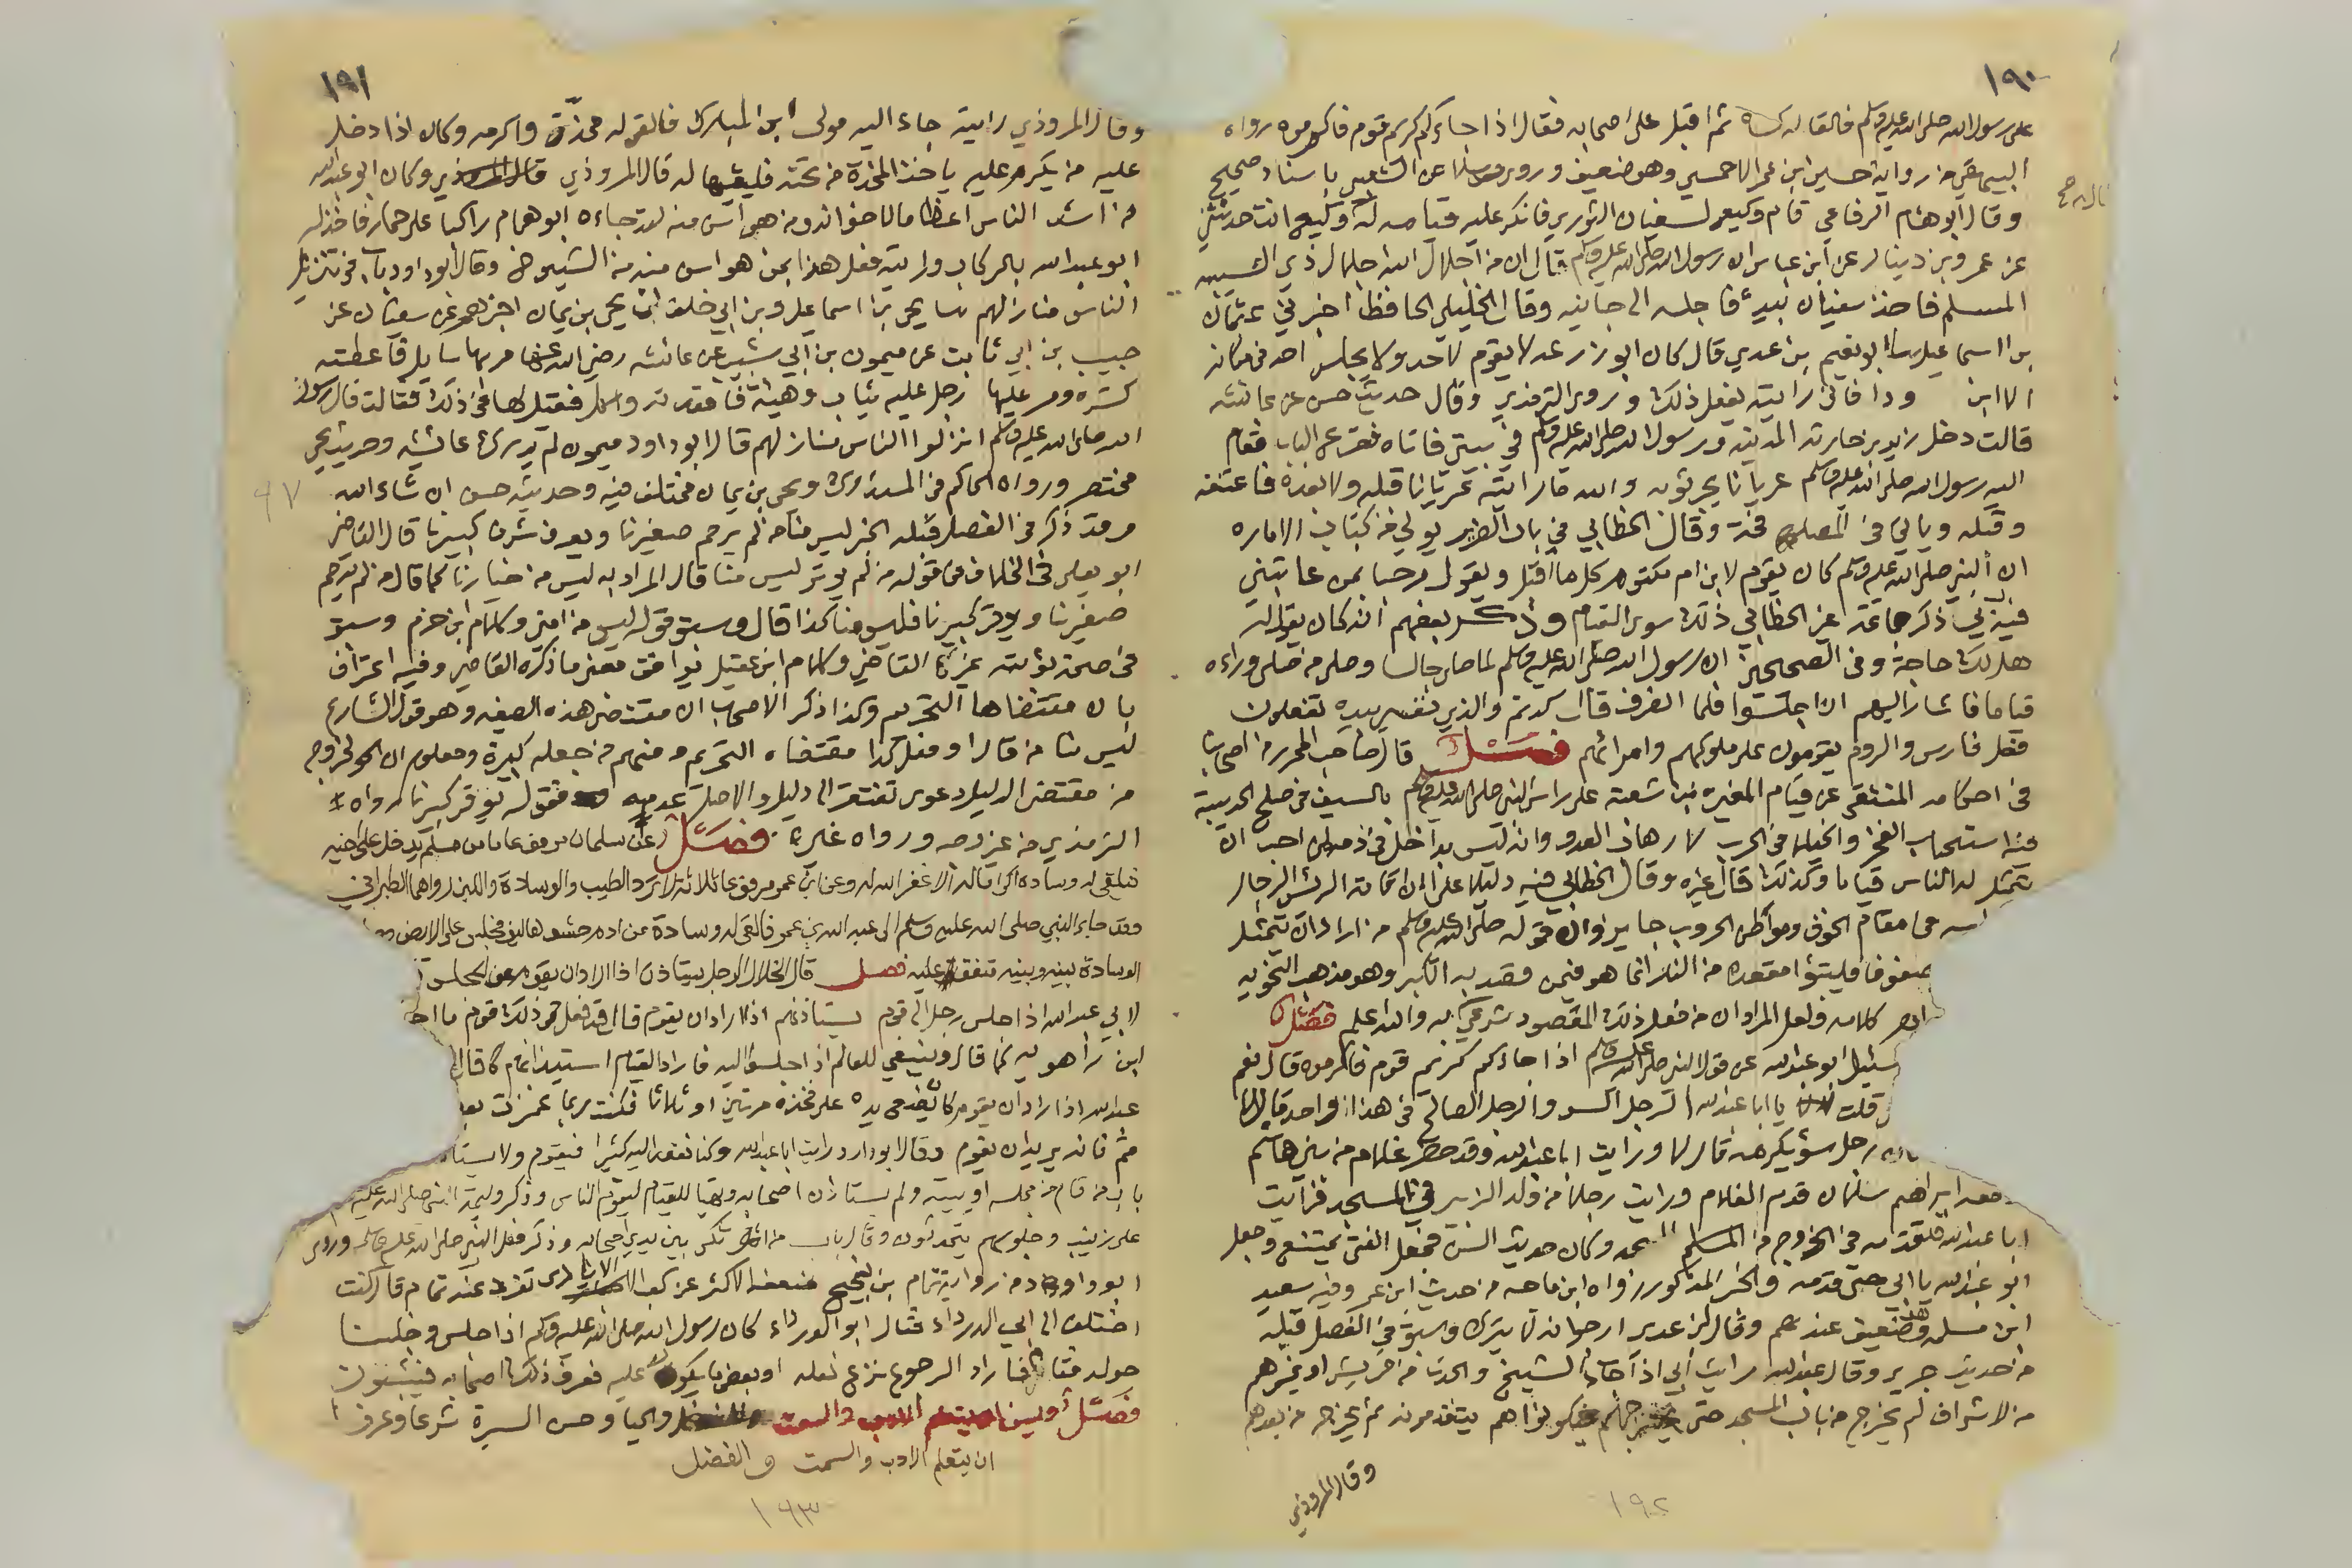 ١٩٠
على رسول الله صلى الله عليه وسلم فالقا له كساه ثم اقبل على اصحابه فقال اذا جاءكم كريم قوم فاكرموه رواه
البيهقي من رواية حسين بن عمر الاحمسي وهو ضعيف وروى مرسلا عن الشعبي باسناد صحيح
وقال ابو هشام الرفاعي قام وكيع لسفيان الثوري فانكر عليه قيامه له وكيع انت حدثتني
عن عمرو بن دينار عن ابن عباس ان رسول الله صلى الله عليه وسلم قال ان من اجلال الله اجلال ذي الشيبة
المسلم فاخذ سفيان بيده فاجلسه الى جانبه وقال الخليلي الحافظ اخبرني عثمان
بن اسماعيل ابو نعيم بن عدي قال كان ابو زرعة لا يقوم لاحد ولا يجلس احد في مكانه
الا ابن ودا فاني رايته يفعل ذلك وروى الترمذي وقال حديث حسن عن عائشه
قالت دخل زيد بن حارثه المدينه ورسول الله صلى الله عليه وسلم في بيتي فاتاه فقرع الباب فقام
اليه رسول الله صلى الله عليه وسلم عريانا يجر ثوبه والله ما رايته عريانا قبله ولا بعده فاعتنقه
وقبله وياتي في وقال الخطابي في باب الضرير يولي من كتاب الاماره
ان النبي صلى الله عليه وسلم كان يقوم لابن ام مكتوم كلما اقبل ويقول مرحبا بمن عاتبني
فيه ربي ذكر جماعة عن الخطابي ذلك سوى القيام وذكر بعضهم انه كان يقول له
هل لك حاجة وفي الصحيحين ان رسول الله صلى الله عليه وسلم لما صلى جالسا وصلى من صلى وراءه
قياما فاشار اليهم ان اجلسوا فلما انصرف قال كدتم والذي نفسي بيده تفعلون
فعل فارس والروم يقومون على ملوكهم وامرائهم فصل قال صاحب المحرر من اصحابنا
في احكامه المنتقى عن قيام المغيره بن شعبه على راس النبي صلى الله عليه وسلم بالسيف في صلح الحديبية
فيه استحباب الفخر والخيلا في الحرب لارهاب العدو وانه ليس بداخل في ذمه لمن احب ان
يتمثل له الناس قياما وكذلك قال غيره وقال الخطابي فيه دليل على ان اقامة الرئيس الرجال
في مقام الخوف ومواطن الحروب جايز وان قوله صلى الله عليه وسلم من اراد ان يتمثل
صفوفا فليتبؤا مقعده من النار انما هو فيمن قصد به الكبر وهو مذهب النخوه
كلامه ولعل المراد ان من فعل ذلك المقصود شرعي والله اعلم فصل
سئل ابو عبد الله عن قول النبي صلى الله عليه وسلم اذا جاءكم كريم قوم فاكرموه قال نعم
قلت يا ابا عبد الله الرجل السو والرجل الصالح في هذا واحد قال لا
رجل سوء يكرمه قال لا ورايت ابا عبد الله وقد حضر غلام من بني هاشم
معه ابراهيم سبلان قدم الغلام ورايت رجلا من ولد الزبير في المسجد فرايت
ابا عبد الله قدمه في الخروج من المسجد وكان حديث السن فجعل الفتى يمتنع وجعل
ابو عبد الله يابى حتى قدمه والخبر المذكور رواه ابن ماجه من حديث ابن عمر وفيه سعيد
ابن مسلمه وهو ضعيف عندهم وقال ابن عدي ارجو انه لا يترك وسبق في الفصل قبله
من حديث جرير وقال عبد الله رايت ابي اذا جاء الشيخ والحدث من قريش او غيرهم
من الاشراف لم يخرج من باب المسجد حتى يخرجهم فيكونوا هم يتقدمونه ثم يخرج من بعدهم
وقال المروذي
١٩٢
١٩١
وقال المروذي رايته جاء اليه مولى ابن المبارك فالقى له مخدة واكرمه وكان اذا دخل
عليه من يكرم عليه ياخذ المخدة من تحته فليقيها له قال المروذي وكان ابو عبد الله
من اشد الناس اعظاما لاخوانه ومن هو اسن منه لقد جاءه ابو همام راكبا على حمار فاخذ له
ابو عبد الله بالركاب ورايته فعل هذا بمن هو اسن منه من الشيوخ وقال ابو داود باب في تنزيل
الناس منازلهم يحيى بن اسماعيل وبن ابي خلف ان يحيى بن يمان اخبرهم عن سفيان عن
حبيب بن ابي ثابت عن ميمون بن ابي شبيب عن عائشه رضي الله عنها مر بها سايل فاعطته
كسره ومر عليها رجل عليه ثياب وهيئة فاقعدته واكل فقيل لها في ذلك فقالت قال رسول
الله صلى الله عليه وسلم انزلوا الناس منازلهم قال ابو داود ميمون لم يدرك عائشه وحديث يحيى
مختصر ورواه الحاكم في المستدرك ويحيى بن يمان مختلف فيه وحديثه حسن ان شاء الله
وقد ذكر في الفصل قبله الخبر ليس منا من لم يرحم صغيرنا ويعرف شرف كبيرنا قال القاضي
ابو يعلى في الخلاف في قوله من لم يوتر ليس منا قال المراد به ليس من خيارنا كما قال من لم يرحم
صغيرنا ويوقر كبيرنا فليس منا كذا قال وسبق قوله ليس من امتي وكلام ابن حزم وسبق
في صحة توبته غير القاضي وكلام ابن عقيل يوافق معنى ما ذكره القاضي وفيه اعتراف
بان مقتضاها التحريم وكذا ذكر الاصحاب ان مقتضى هذه الصيغه وهو قول الشارع
ليس منا من قال او فعل كذا مقتضاه التحريم ومنهم من جعله كبيرة ومعلوم ان الخروج
عن مقتضى الدليل دعوى تفتقر الى دليل والاصل عدمه فقوله يوقر كبيرنا رواه
الترمذي من غير وجه ورواه غيره فصل عن سلمان مرفوعا ما من مسلم يدخل على اخيه
فيلقى له وسادة اكراما له الا غفر الله له وعن ابن عمر مرفوعا ثلاثه لا ترد الطيب والوسادة واللبن رواهما الطبراني
وقد جاء النبي صلى الله عليه وسلم الى عبد الله بن عمرو فالقى له وسادة من ادم حشوها ليف فجلس على الارض
الوسادة بينه وبينه متفق عليه فصل قال الخلال الرجل يستاذن اذا اراد ان يقوم من المجلس
لابي عبد الله اذا جلس رجل الى قوم يستاذنهم اذا اراد ان يقوم قال قد فعل ذلك قوم ما ا
ابن راهويه كما قال وينبغي للعالم اذا جلس اليه فاراد القيام استيذانهم قال
عبد الله اذا اراد ان يقوم كان يضع يده على فخذه مرتين او ثلاثا فكنت ربما غمزت
قم فانه يريد ان يقوم وقال ابو داود رايت ابا عبد الله وكنا نقعد اليه كثيرا فيقوم ولا يستاذن
باب من قام من مجلسه او بيته ولم يستاذن اصحابه وتهيا للقيام ليقوم الناس وذكر وليمة النبي صلى الله عليه
على زينب وجلوسهم يتحدثون وقال باب من اتكى بين يدي اصحابه وذكر فعل النبي صلى الله عليه وسلم وروى
ابو داود من رواية تمام بن نجيح ضعفه الاكثر عن كعب الايادي تفرد عنه تمام قال كنت
اختلف الى ابي الدرداء فقال ابو الدرداء كان رسول الله صلى الله عليه وسلم اذا جلس وجلسنا
حوله فقام فاراد الرجوع نزع نعله او بعض ما يكون عليه فعرف ذلك اصحابه فيثبتون
فصل ويسن ان يتعلم الادب والسمت والحيا وحسن السيرة شرعا وعرفا
ان يتعلم الادب والسمت والفضل
١٩٣
٩٧